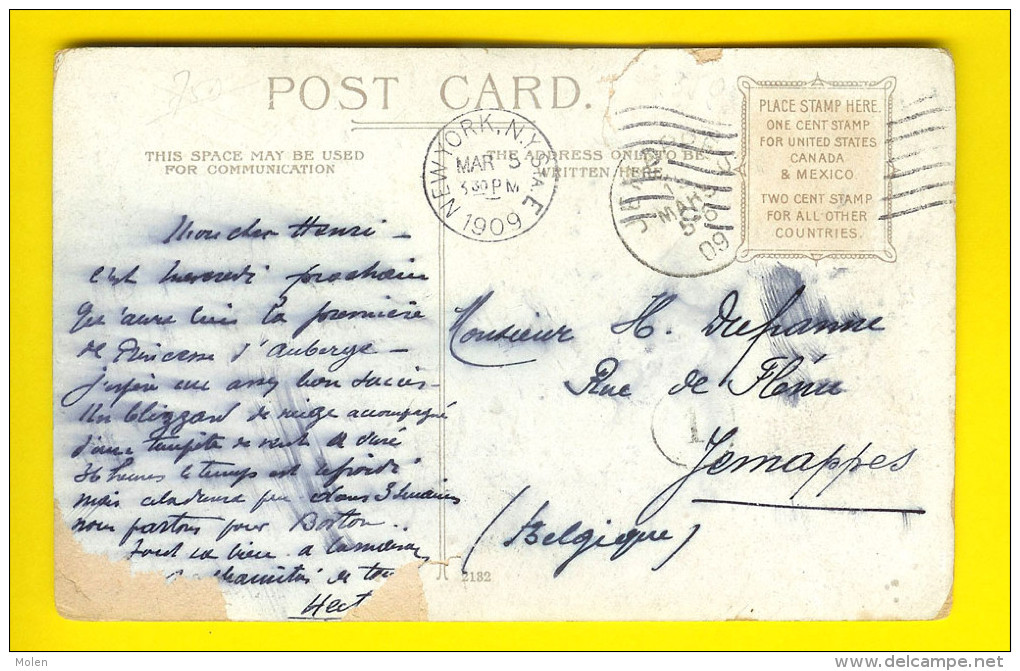 POST CARD.
THIS SPACE MAY BE USED
FOR COMMUNICATION
THE ADDRESS ONLY TO BE
WRITTEN HERE.
NEW YORK, N.Y. STA. E
MAR 5
3 30 PM
1909
MARS
09
PLACE STAMP HERE.
ONE CENT STAMP
FOR UNITED STATES
CANADA
& MEXICO.
TWO CENT STAMP
FOR ALL OTHER
COUNTRIES.
Mon cher Henri —
C'est mercredi prochain
qu'aura lieu la première
de Princesse d'Auberge —
j'espère un assez bon succès —
Un blizzard de neige accompagné
d'une tempête de vent a duré
36 heures le temps est refroidi
mais cela durera peu. Dans 3 semaines
nous partons pour Boston..
Tout va bien.
de tou
Hect
Monsieur H. Dufranne
Rue de Flénu
Jemappes
(Belgique)
1
2132
Molen
delcampe.net